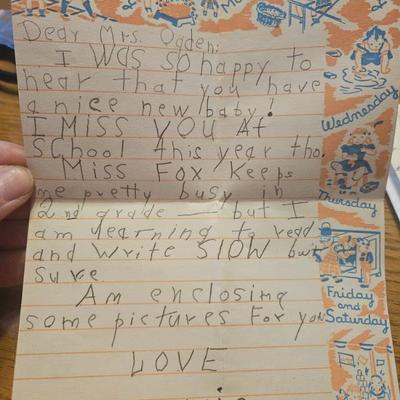 Dear Mrs. Ogden:
I was so happy to
hear that you have
a nice new baby!
I MISS YOU At
SCHool this year tho.
Miss Fox keeps
me pretty busy in
2nd grade — but I
am learning to read
and write SlOW but
sure
Am enclosing
some pictures For you
LOVE
Wednesday
Thursday
Friday
and
Saturday